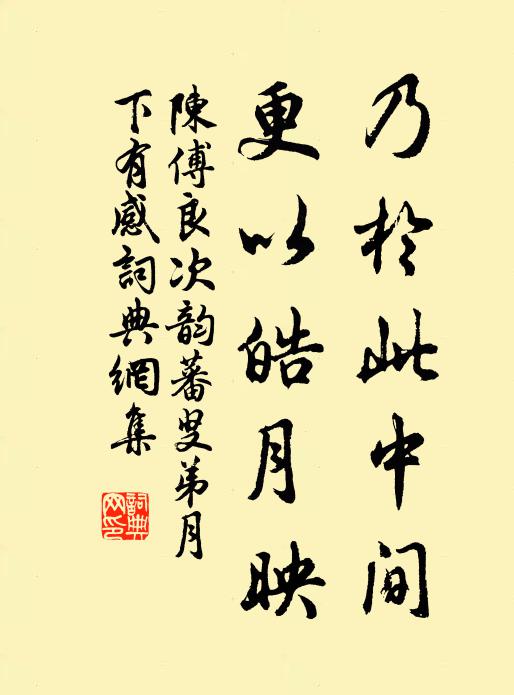 乃於此中间
更以皓月映
陳傅良次韵蕃叟弟月
下有感詞典網集
詞典
网印